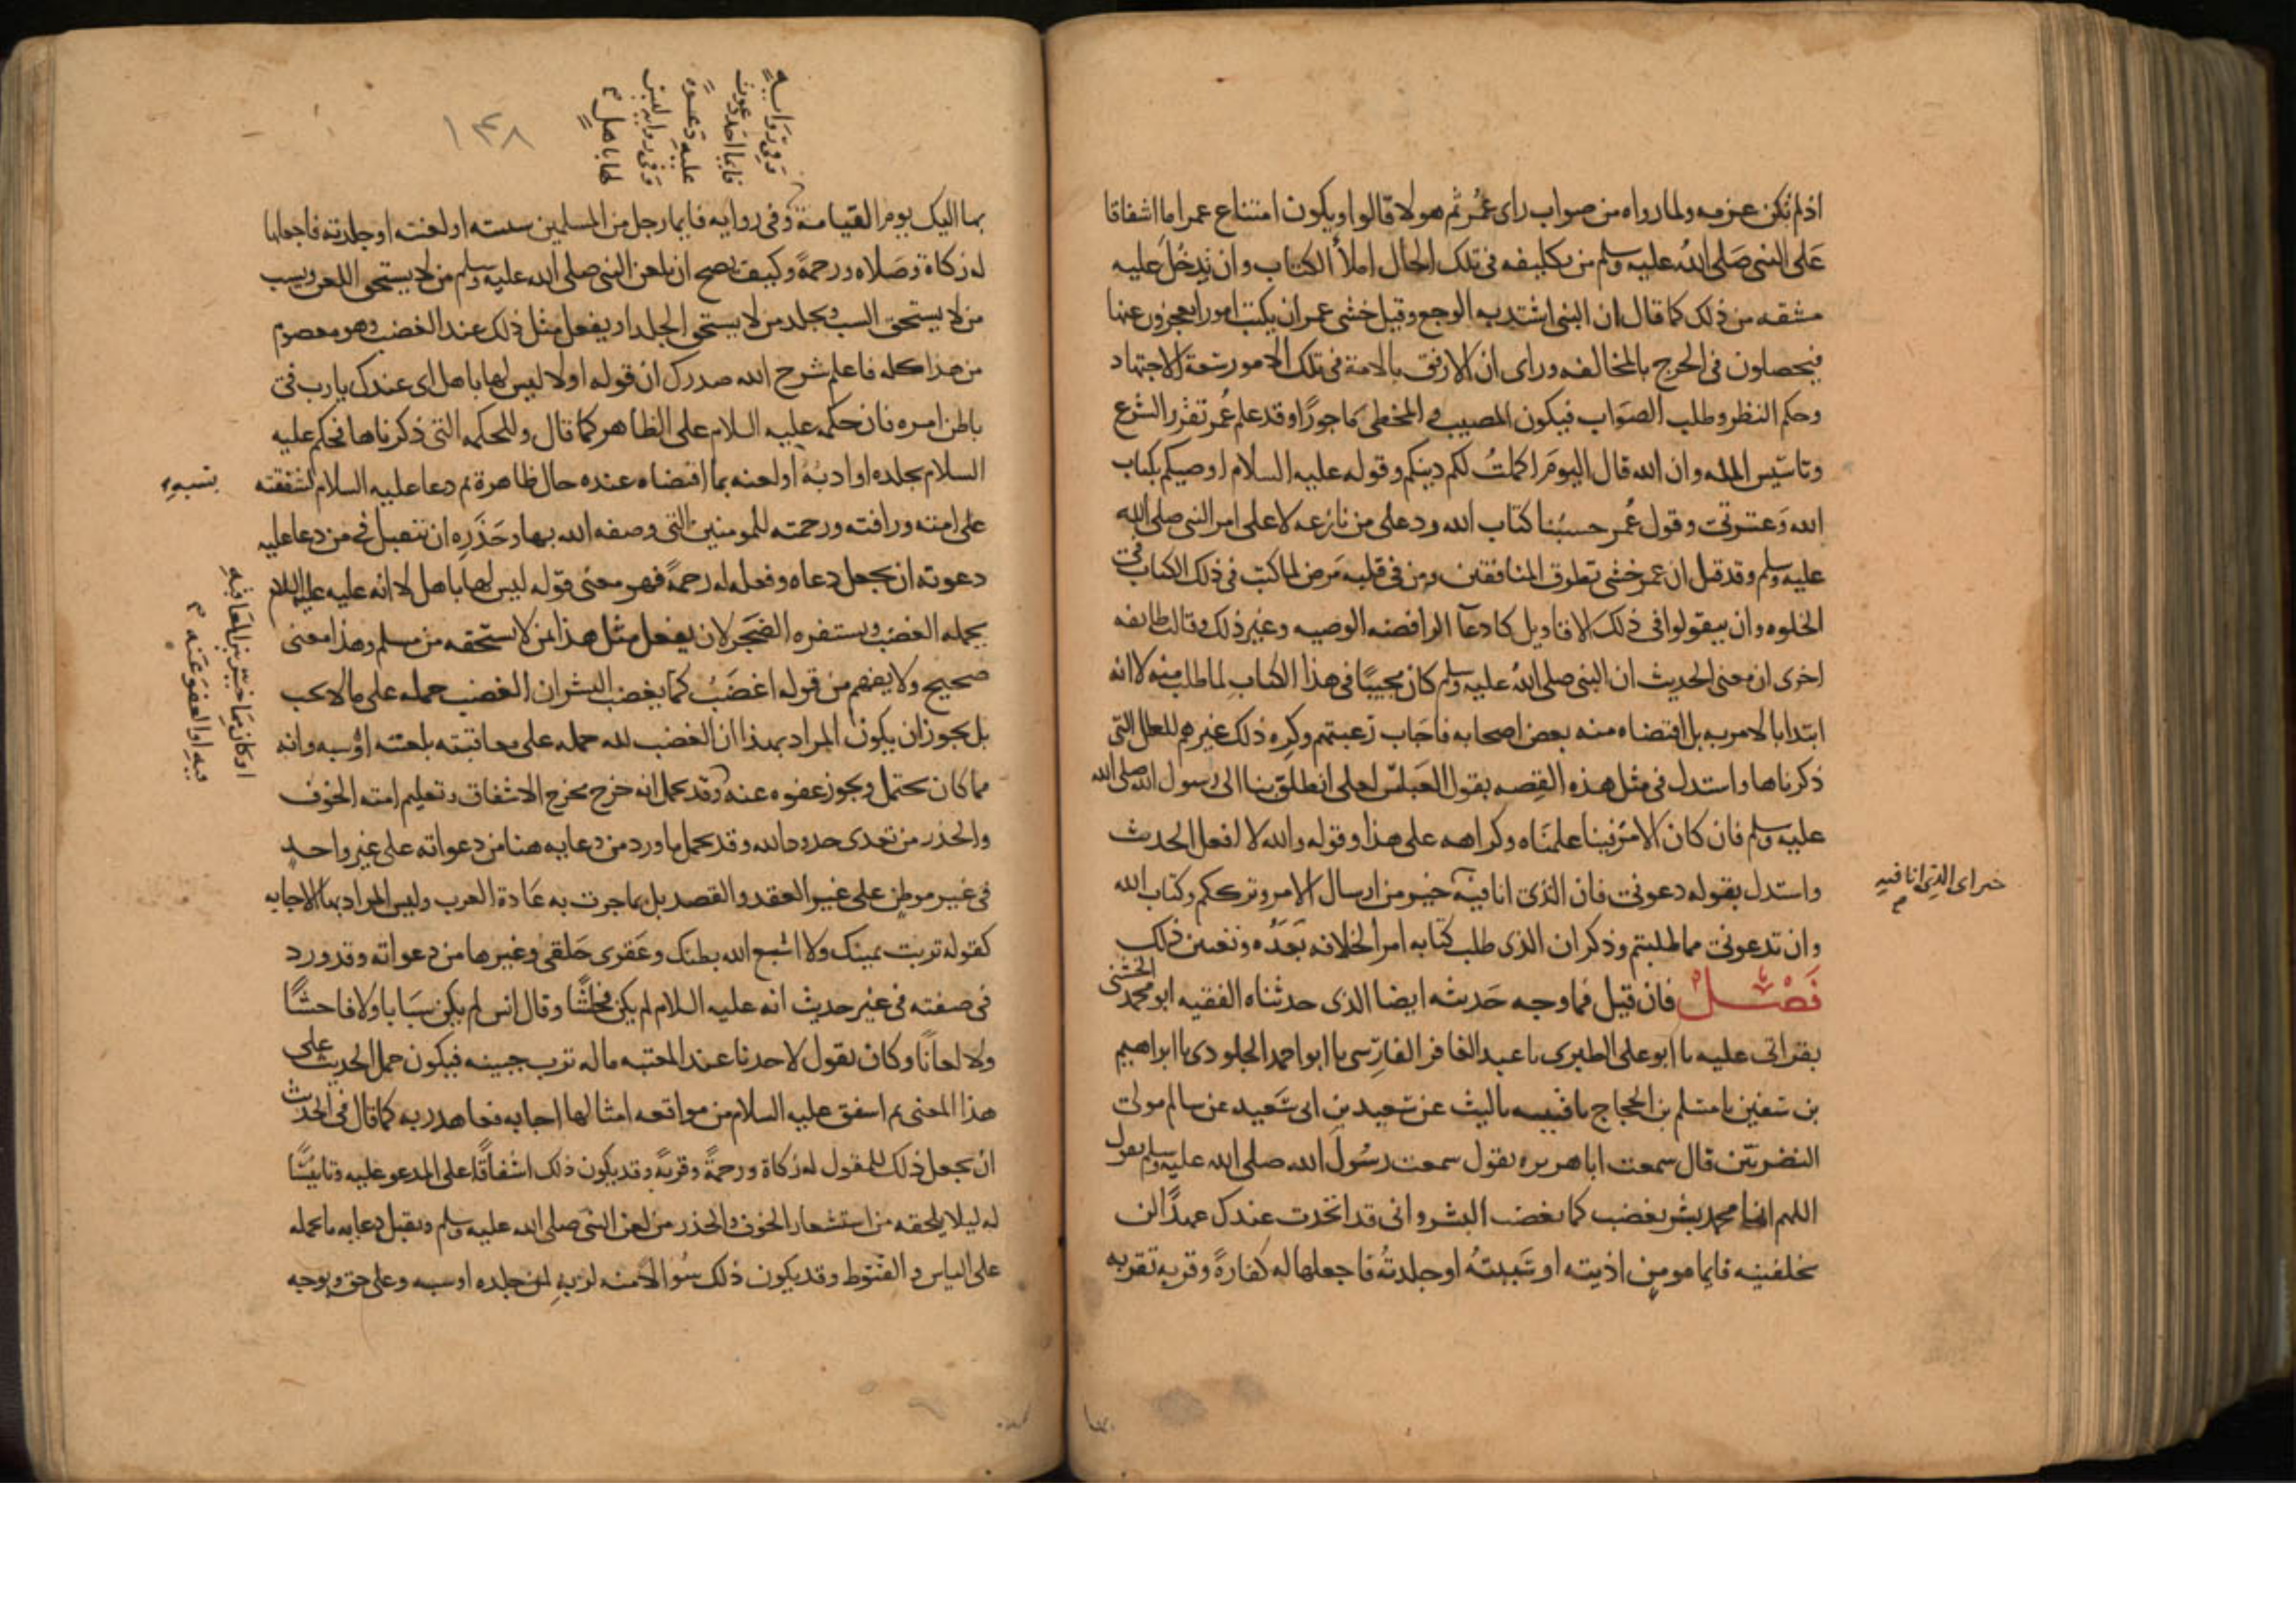 اذ لم تكن عزمه ولما رواه من صواب راى عُمر ثم هولا قالوا ويكون امتناع عمر اما اشفاقا
عَلى النبى صَلى اللهُ عليه وسلم من تكليفه فى تلك الحال املأ الكتاب وان تدخُل عليه
مشقه من ذلك كما قال ان النبى اشتد به الوجع وقيل خشى عمر ان يكتب امورا يعجزون عنها
فيحصلون فى الحرج بالمخالفه وراى ان الارفق بالامة فى تلك الامور سَعة الاجتهاد
وحكم النظر وطلب الصَواب فيكون المصيب والمخطى مَاجورًا وقد علم عُمر تقرر الشرع
وتاسيس المله وان الله قال اليومَ اكملتُ لكم دينكم وقوله عليه السلام اوصيكم بكتاب
الله وَعترتى وقول عُمر حسبُنا كتاب الله رد على من نازعه لا على امر النبى صلى الله
عليه وسلم وقد قيل ان عمر خشى تطرق المنافقين ومن فى قلبه مَرض لما كتب فى ذلك الكتاب فى
الخلوه وان يتقولوا فى ذلك الاقاويل كادعآ الرافضه الوصيه وغير ذلك وقالت طايفه
اخرى ان معنى الحديث ان النبى صلى اللهُ عليه وسلم كان مجيبًا فى هذا الكتاب لما طلب منه لا انه
ابتدا بالامر به بل اقتضاه منه بعض اصحابه فاجَاب رَغبتهم وكرِه ذلك غيرهم للعلل التى
ذكرناها واستدل فى مثل هذه القِصه بقول العَباس لعلى انطلق بنا الى رسول الله صلى الله
عليه وسلم فان كان الامرُ فينا علمنَاه وكراهه على هذا وقوله والله لا افعل الحديث
واستدل بقوله دعونى فان الذى انا فيه خير من ارسال الامر وتركم وكتاب الله
خير اى الذى انا فيه
وان تدعونى مما طلبتم وذكر ان الذى طلب كتابه امر الخلافه بَعدَه وتعيين ذلك
فَصْل فان قيل فما وجه حَديثه ايضا الذى حدثناه الفقيه ابو محمد الخشنى
بقراتى عليه نا ابو على الطبرى نا عبد الغافر الفارِسى نا ابو احمد الجلودى نا ابراهيم
بن سَفين نا مسلم بن الحجاج نا قتيبه نا ليث عن سَعيد بن ابى سَعيد عن سالم مولى
النضريّين قال سمعت ابا هريره يقول سمعت رسُول الله صلى الله عليه وسلم يقول
اللهم انما محمد بشر يغضب كما يغضب البشر وانى قد اتخذت عندك عهدًا لن
تخلفنيه فايما مومن اذيته او سَببتُه او جلدتُه فاجعلها له كفارةً وقربه تقربه
وفى رَوايةٍ
فايما احد دعوت
عليه دَعوةً
وَفى روايه ليس
لها باهلٍ
١٤٨
بها اليك يوم القيامة وفى روايه فايما رجل من المسلمين سببته او لعنته او جلدته فاجعلها
له زكاة وصَلاه ورحمةً وكيف يصح ان يلعن النبى صلى الله عليه وسلم من لا يستحق اللعن ويسب
من لا يستحق السب ويجلد من لا يستحق الجلد او يفعل مثل ذلك عند الغضب وهو معصوم
من هذا كله فاعلم شرح الله صدرك ان قوله اولا ليس لها باهل اى عندك يارب فى
باطن امره فان حكمه عليه السلام على الظاهر كما قال وللحكمه التى ذكرناها فحكم عليه
السلام بجلده او ادبُه او لعنه بما اقتضاه عنده حال ظاهرة ثم دعا عليه السلام لشفقته
بسبهِ
على امته ورافته ورحمته للمومنين التى وصفه الله بها وحَذَرِه ان تتقبل فى من دعا عليه
دعوته ان يجعل دعاه وفعله له رحمةً فهو معنى قوله ليس لها باهل لا انه عليه السلام
يحمله الغضب ويستفزه الضَجَر لان يفعل مثل هذا بمن لا يستحقه من مسلم وهذا معنى
صحيح ولا يفهم من قوله اغضَبُ كما يغضب البشر ان الغضب حمله على ما لا يجب
بل يجوز ان يكون المراد بهذا ان الغضب لله حمله على معاقبته بلعنه او سبه وانه
مما كان يحتمل ويجوز عفوه عنه وقد يحمل انه خرج مخرج الاشفاق وتعليم امته الخوف
او كان مِمَا خيّر بين المعَاقبةِ
فيهِ او العفو عَنه
والحذر من تعدى حدود الله وقد يحمل ما ورد من دعايه هنا من دعواته على غير واحدٍ
فى غير موطن على غير العقد والقصد بل بما جرت به عَادة العرب وليس المراد بها الاجابه
كقوله تربت يمينك ولا اشبع الله بطنك وعَقرى حَلقى وغيرها من دعواته وقد ورد
فى صفته فى غير حديث انه عليه السلام لم يكن فحاشًا وقال انس لم يكن سَبابا ولا فاحشًا
ولا لعانًا وكان يقول لاحدنا عند المعتبه ماله ترب جبينه فيكون حمل الحديث على
هذا المعنى ثم اشفق عليه السلام من موافقه امثالها اجابه فعاهد ربه كما قال فى الحديث
ان يجعل ذلك للمقول له زكاة ورحمةً وقربةً وقد يكون ذلك اشفاقًا على المدعو عليه وتانيسًا
له ليلا يلحقه من استشعار الخوف والحذر من لعن النبى صلى الله عليه وسلم وتقبل دعايه ما يحمله
على الياس والقنوط وقد يكون ذلك سُوالا منه لربهِ لمن جلده او سبه وعلى حق وبوجه